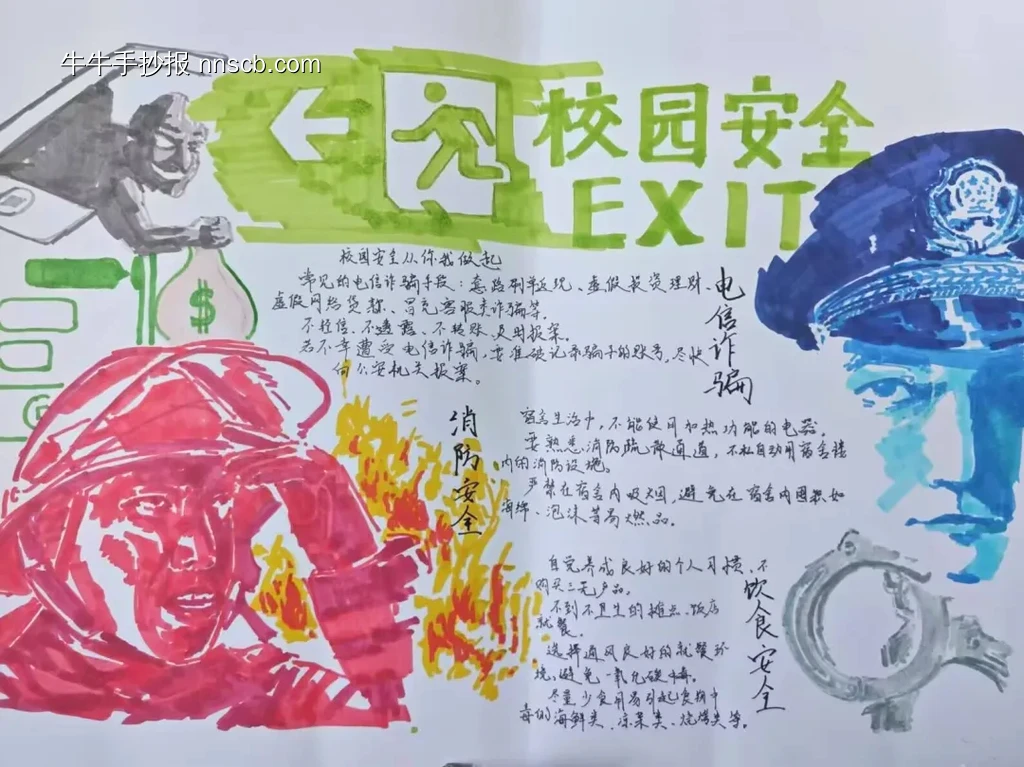 牛牛手抄报 nnscb.com
校园安全
EXIT
$
校园安全从你我做起
常见的电信诈骗手段：套路刷单返现、虚假投资理财、
虚假网络贷款、冒充客服类诈骗等。
不轻信、不透露、不转账、及时报案。
若不幸遭受电信诈骗，要准确记录骗子的账号，尽快
向公安机关报案。
电信诈骗
消防安全
宿舍生活中，不能使用加热功能的电器。
要熟悉消防疏散通道，不私自动用宿舍楼
内的消防设施。
严禁在宿舍内吸烟，避免在宿舍内囤积如
海绵、泡沫等易燃品。
饮食安全
自觉养成良好的个人习惯、不
购买三无产品。
不到不卫生的摊点、饭店
就餐。
选择通风良好的就餐环
境，避免一氧化碳中毒。
尽量少食用易引起食物中
毒的海鲜类、凉菜类、烧烤类等。